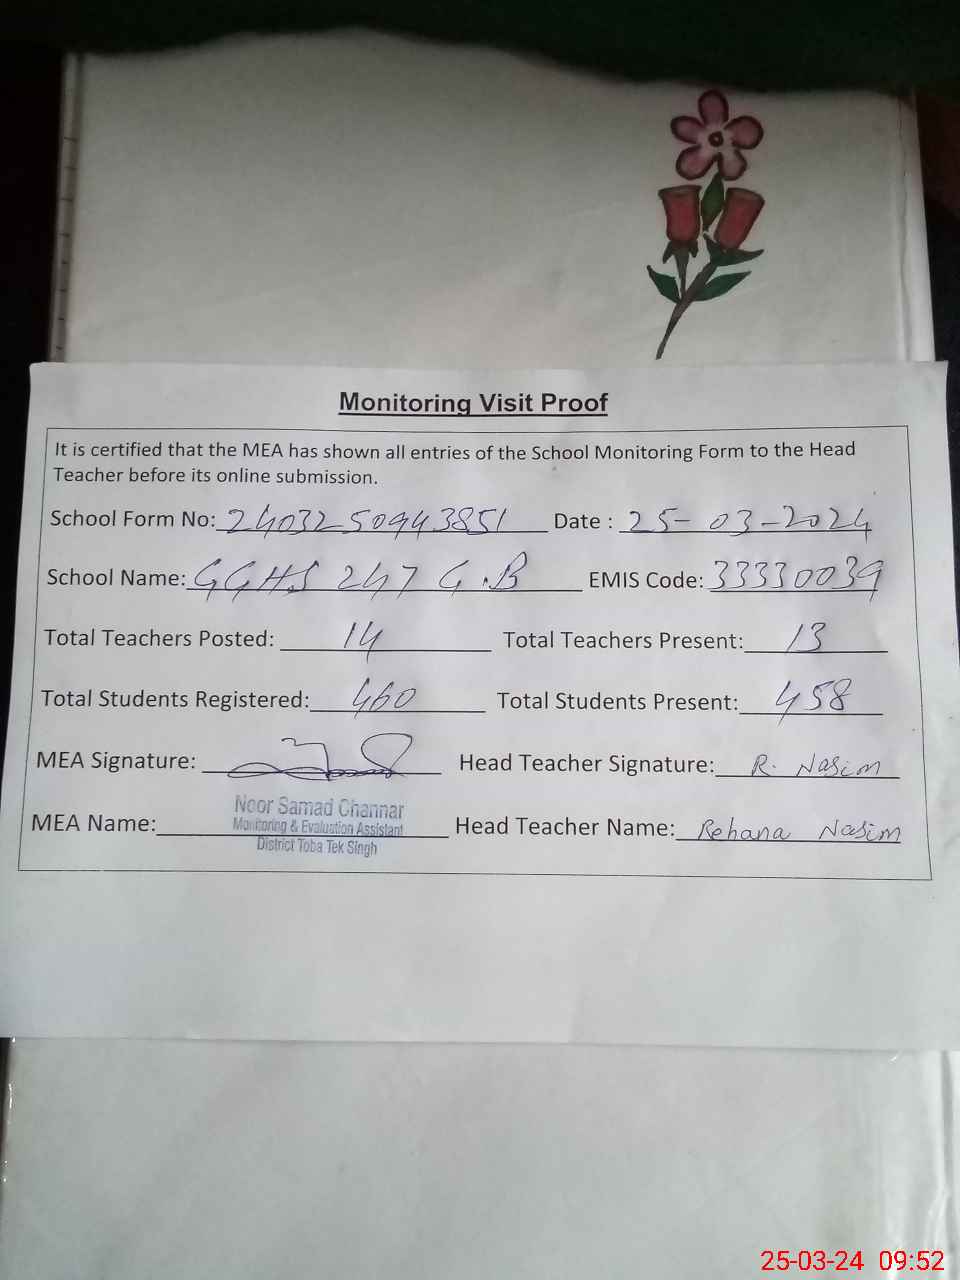 Monitoring Visit Proof
It is certified that the MEA has shown all entries of the School Monitoring Form to the Head
Teacher before its online submission.
School Form No: 2403250943851 Date : 25-03-2024
School Name: GGHS 247 G.B EMIS Code: 33330039
Total Teachers Posted: 14 Total Teachers Present: 13
Total Students Registered: 460 Total Students Present: 458
MEA Signature: Head Teacher Signature: R. Nasim
MEA Name: Noor Samad Channar
Monitoring & Evaluation Assistant
District Toba Tek Singh
Head Teacher Name: Rehana Nasim
25-03-24 09:52